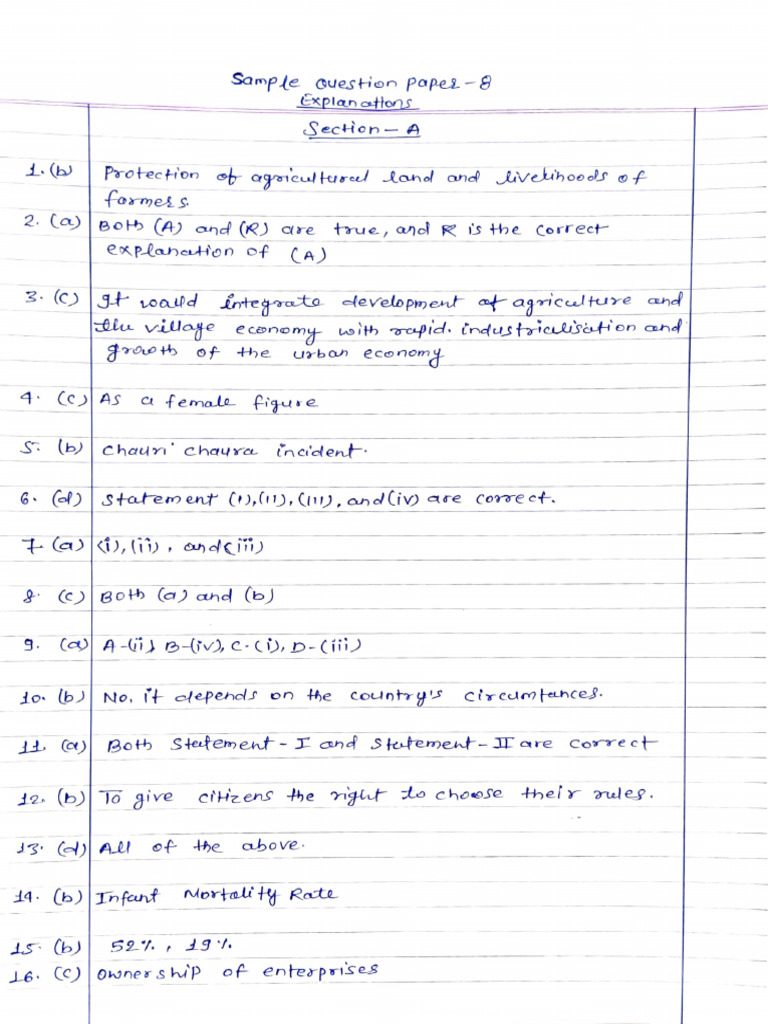 Sample Question Paper-8
Explanations
Section-A
1. (b) Protection of agricultural land and livelihoods of
farmers.
2. (a) Both (A) and (R) are true, and R is the correct
explanation of (A)
3. (c) It would integrate development of agriculture and
the village economy with rapid. industrialisation and
growth of the urban economy
4. (c) As a female figure
5. (b) Chauri Chaura incident.
6. (d) Statement (i),(ii),(iii), and(iv) are correct.
7. (a) (i),(ii), and(iii)
8. (c) Both (a) and (b)
9. (a) A-(ii), B-(iv), C-(i), D-(iii)
10. (b) No, it depends on the country's circumtances.
11. (a) Both Statement-I and Statement-II are correct
12. (b) To give citizens the right to choose their rules.
13. (d) All of the above.
14. (b) Infant Mortality Rate
15. (b) 52%, 19%
16. (c) Ownership of enterprises